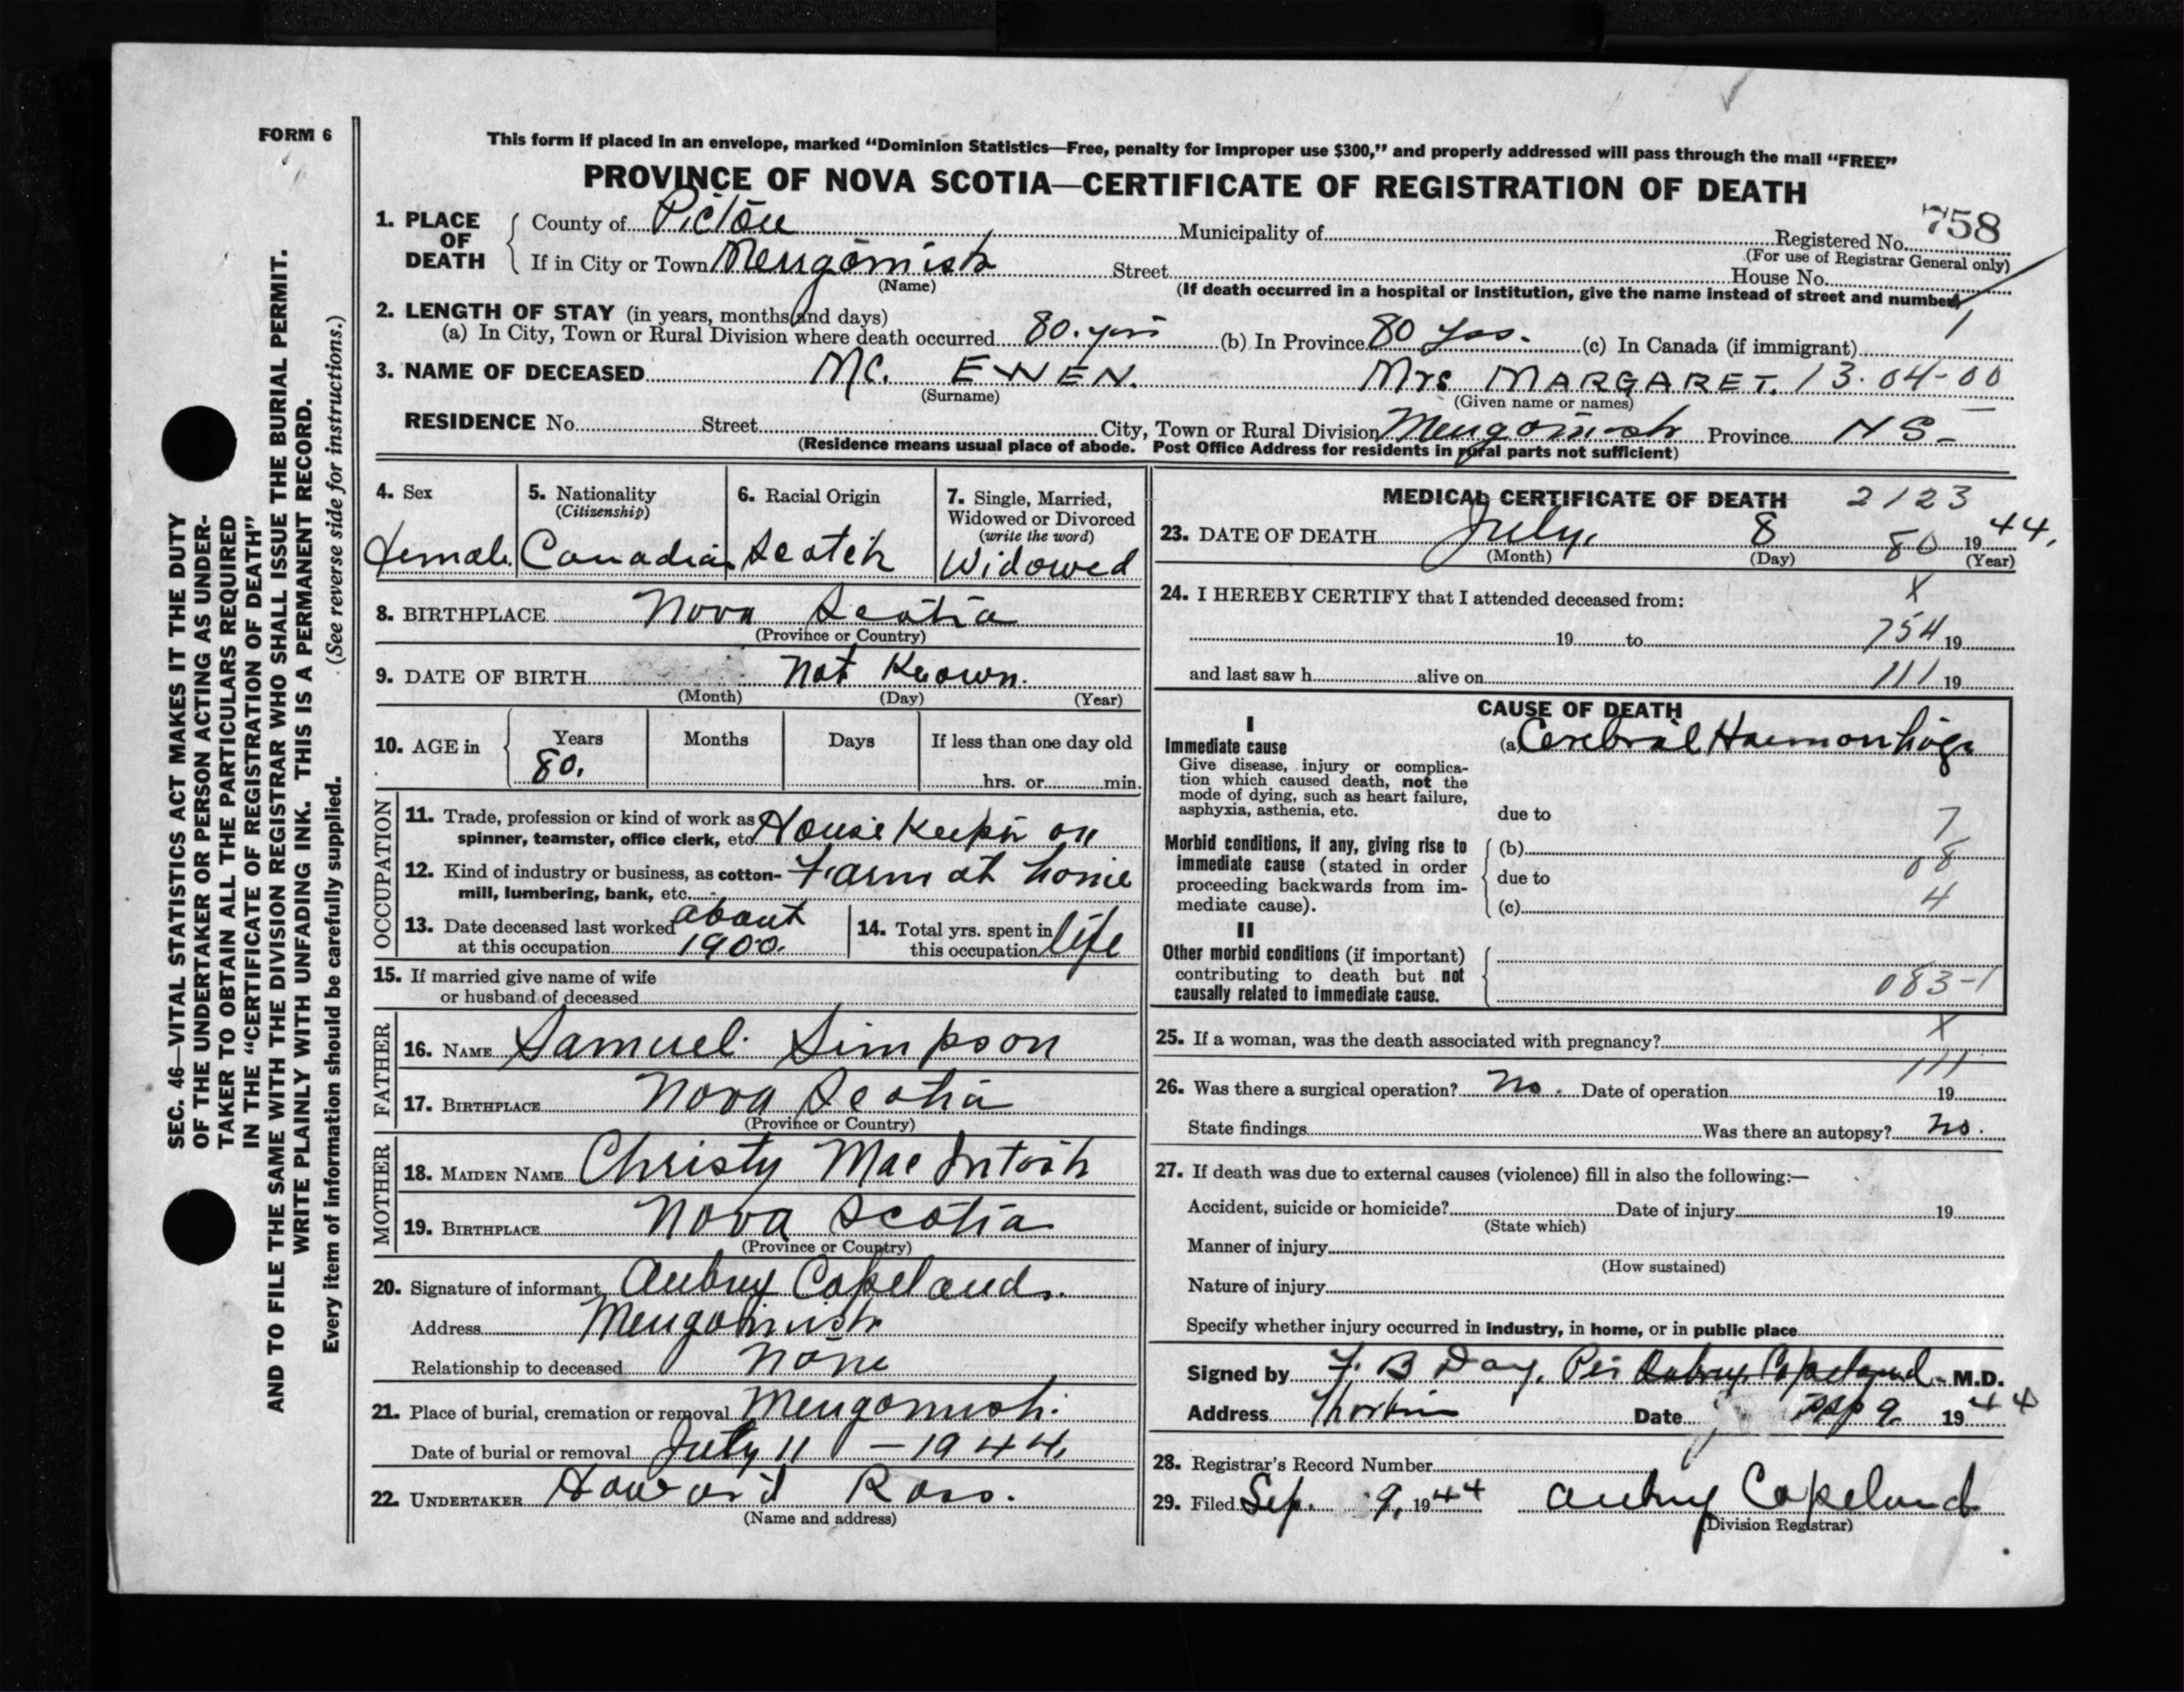 FORM 6
This form if placed in an envelope, marked “Dominion Statistics—Free, penalty for improper use $300,” and properly addressed will pass through the mail “FREE”
PROVINCE OF NOVA SCOTIA—CERTIFICATE OF REGISTRATION OF DEATH
758
1. PLACE OF DEATH
County of Pictou Municipality of Registered No.
(For use of Registrar General only)
If in City or Town Merigomish Street House No.
(Name) (If death occurred in a hospital or institution, give the name instead of street and number)
1
2. LENGTH OF STAY (in years, months and days)
(a) In City, Town or Rural Division where death occurred 80. yrs (b) In Province 80 yrs. (c) In Canada (if immigrant)
3. NAME OF DECEASED Mc. EWEN. Mrs MARGARET. 13.04-00
(Surname) (Given name or names)
RESIDENCE No. Street City, Town or Rural Division Merigomish Province N S-
(Residence means usual place of abode. Post Office Address for residents in rural parts not sufficient)
4. Sex
Female
5. Nationality
(Citizenship)
Canadian
6. Racial Origin
Scotch
7. Single, Married,
Widowed or Divorced
(write the word)
Widowed
8. BIRTHPLACE Nova Scotia
(Province or Country)
9. DATE OF BIRTH Not Known.
(Month) (Day) (Year)
10. AGE in
Years Months Days If less than one day old
80. hrs. or min.
OCCUPATION
11. Trade, profession or kind of work as
spinner, teamster, office clerk, etc. House Keeper on
12. Kind of industry or business, as cotton-
mill, lumbering, bank, etc. Farm at home
13. Date deceased last worked
at this occupation about 1900.
14. Total yrs. spent in
this occupation life
15. If married give name of wife
or husband of deceased
FATHER
16. NAME Samuel Simpson
17. BIRTHPLACE Nova Scotia
(Province or Country)
MOTHER
18. MAIDEN NAME Christy MacIntosh
19. BIRTHPLACE Nova Scotia
(Province or Country)
20. Signature of informant Aubrey Copeland.
Address Merigomish
Relationship to deceased none
21. Place of burial, cremation or removal Merigomish.
Date of burial or removal July 11 - 1944.
22. UNDERTAKER Howard Ross.
(Name and address)
MEDICAL CERTIFICATE OF DEATH 2123
23. DATE OF DEATH July. 8 80 1944.
(Month) (Day) (Year)
24. I HEREBY CERTIFY that I attended deceased from: X
19 to 754 19
and last saw h alive on 111 19
CAUSE OF DEATH
I
Immediate cause
(a) Cerebral Haemorrhage
Give disease, injury or complica-
tion which caused death, not the
mode of dying, such as heart failure,
asphyxia, asthenia, etc.
due to
7
Morbid conditions, if any, giving rise to
immediate cause (stated in order
proceeding backwards from im-
mediate cause).
(b)
08
due to
4
(c)
II
Other morbid conditions (if important)
contributing to death but not
causally related to immediate cause.
083-1
25. If a woman, was the death associated with pregnancy? X
111
26. Was there a surgical operation? No. Date of operation 19
State findings Was there an autopsy? No.
27. If death was due to external causes (violence) fill in also the following:—
Accident, suicide or homicide? Date of injury 19
(State which)
Manner of injury
(How sustained)
Nature of injury
Specify whether injury occurred in industry, in home, or in public place
Signed by F. B Day, Per Aubrey Copeland M.D.
Address Thorburn Date Sep 9. 1944
28. Registrar's Record Number
29. Filed Sep. 9, 1944 Aubrey Copeland
(Division Registrar)
SEC. 46—VITAL STATISTICS ACT MAKES IT THE DUTY
OF THE UNDERTAKER OR PERSON ACTING AS UNDER-
TAKER TO OBTAIN ALL THE PARTICULARS REQUIRED
IN THE “CERTIFICATE OF REGISTRATION OF DEATH”
AND TO FILE THE SAME WITH THE DIVISION REGISTRAR WHO SHALL ISSUE THE BURIAL PERMIT.
WRITE PLAINLY WITH UNFADING INK. THIS IS A PERMANENT RECORD.
Every item of information should be carefully supplied. (See reverse side for instructions.)